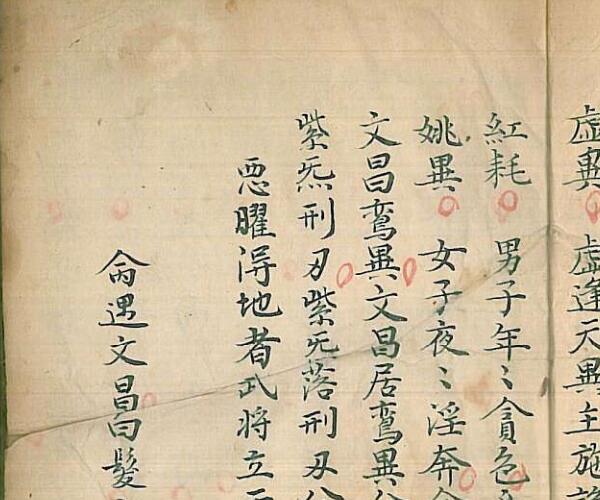 虛異 虛逢天異主施
紅耗 男子年〻貪色
姚異 女子夜〻淫奔
文昌鸞異 文昌居鸞異
紫炁刑刃 紫炁落刑刃
悪曜得地者武将立
命遇文昌白髮